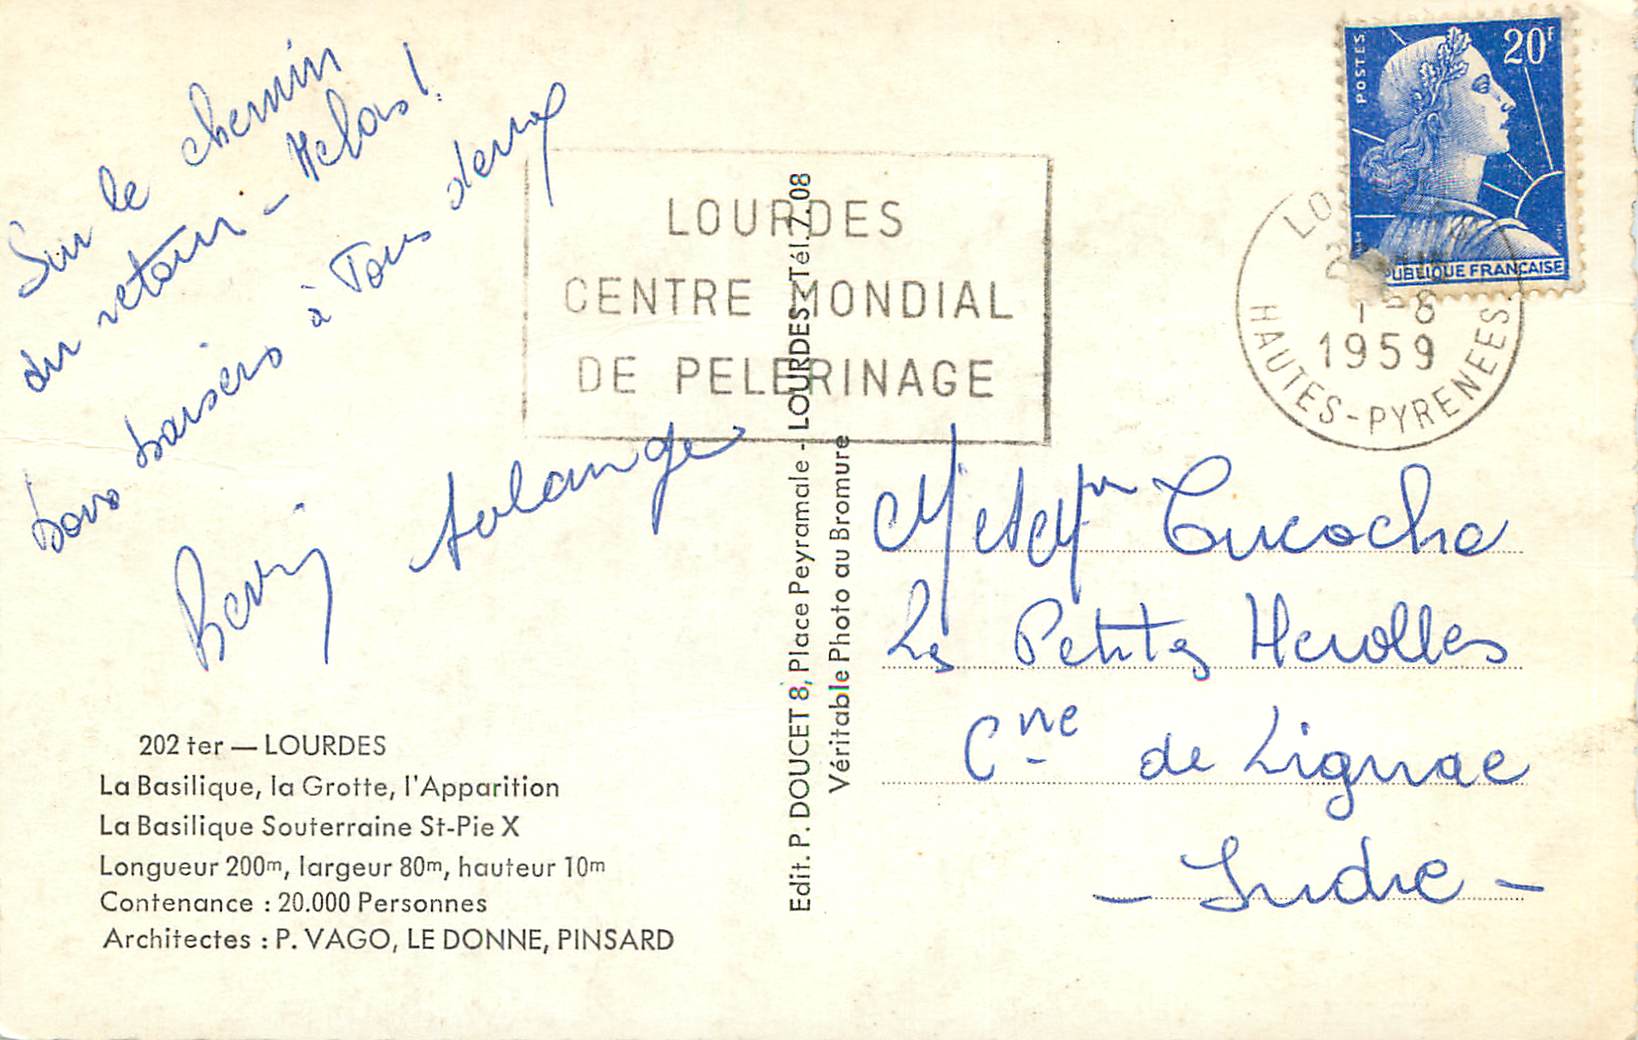 Sur le chemin
du retour - Helas!
bons baisers à Tous deux
Solange
202 ter — LOURDES
La Basilique, la Grotte, l'Apparition
La Basilique Souterraine St-Pie X
Longueur 200m, largeur 80m, hauteur 10m
Contenance : 20.000 Personnes
Architectes : P. VAGO, LE DONNE, PINSARD
LOURDES
CENTRE MONDIAL
DE PELERINAGE
Edit. P. DOUCET 8, Place Peyramale - LOURDES - Tél. 7.08
Véritable Photo au Bromure
POSTES
20F
PUBLIQUE FRANÇAISE
1-8
1959
HAUTES-PYRENEES
M et Mme Cucocha
Les Petites Herolles
Cne de Lignac
- Indre -